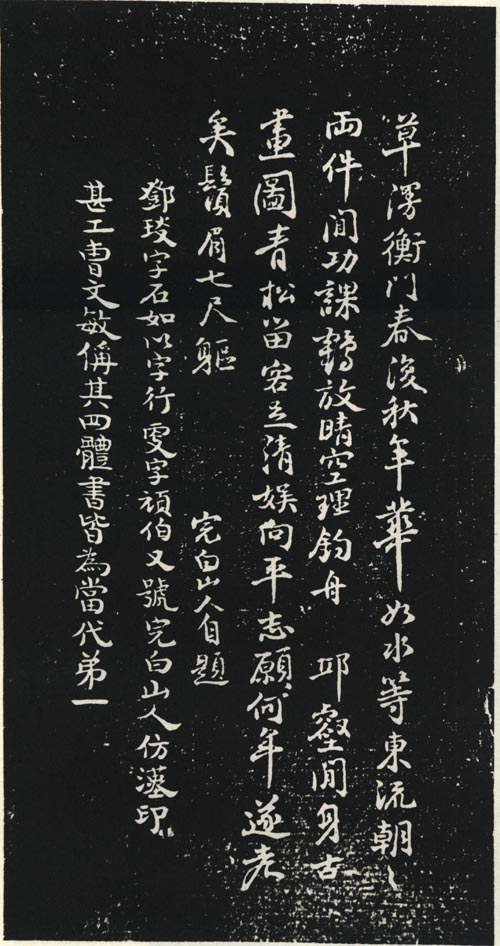 草漫衡門春復秋年華如水等東流朝〻
両件閒功課鶴放晴空理釣舟　邱壑閒身古
畫圖青松留客足清娛向平志願何年遂老
矣鬚眉七尺軀　完白山人自題
鄧琰字石如以字行更字頑伯又號完白山人仿漢印
甚工曹文敏偁其四體書皆為當代弟一